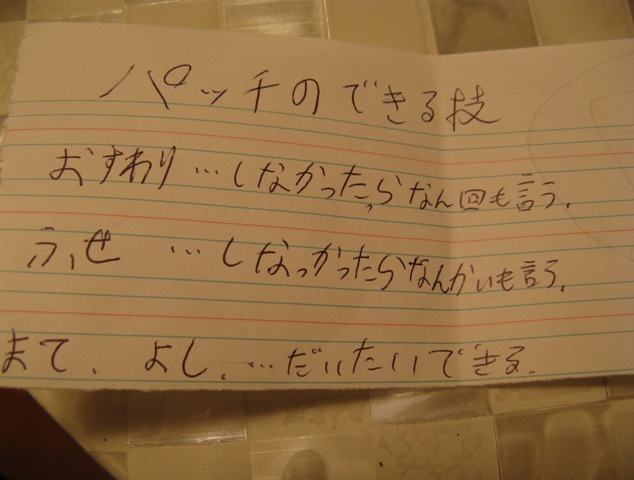 パッチのできる技
おすわり…しなかったらなん回も言う。
ふせ…しなかったらなんかいも言う。
まて、よし、…だいたいできる。